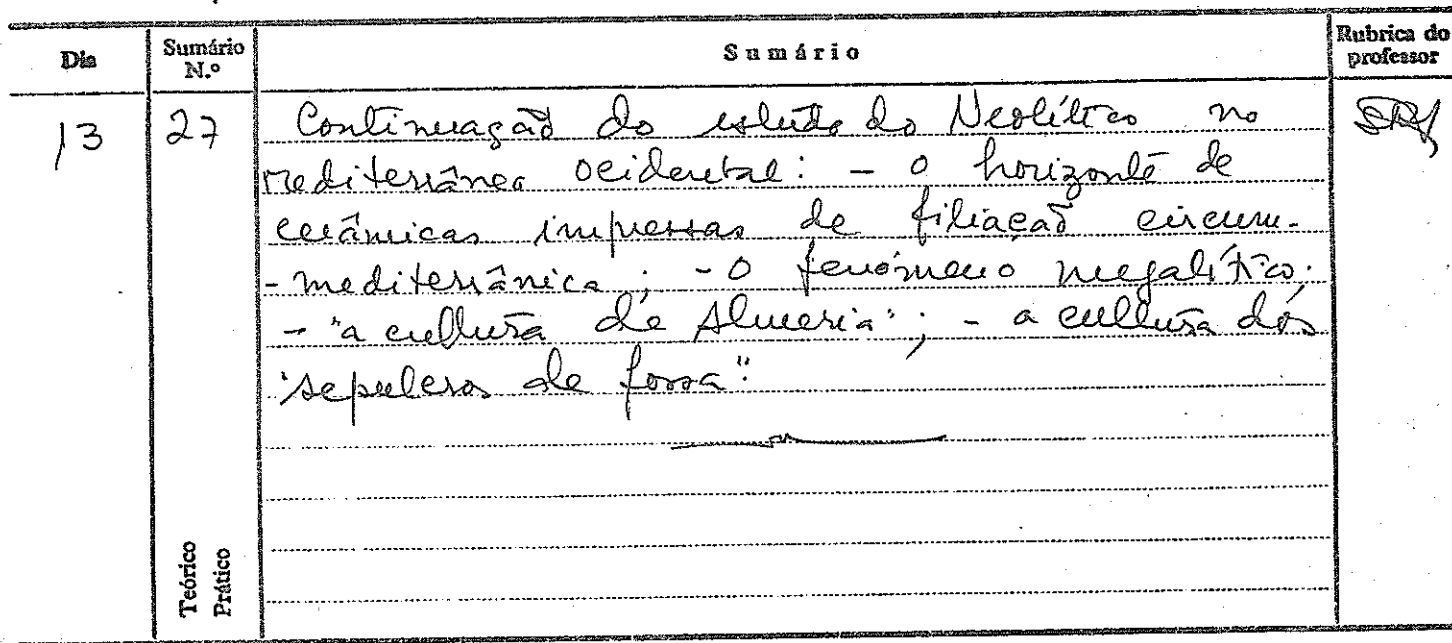 Dia
Sumário N.º
Sumário
Rubrica do professor
13
27
Continuação do estudo do Neolítico no
mediterrânea ocidental: - o horizonte de
cerâmicas impressas de filiação circum-
-mediterrânica; - o fenómeno megalítico;
- "a cultura de Almeria"; - a cultura dos
"sepulcros de fossa".
Teórico
Prático